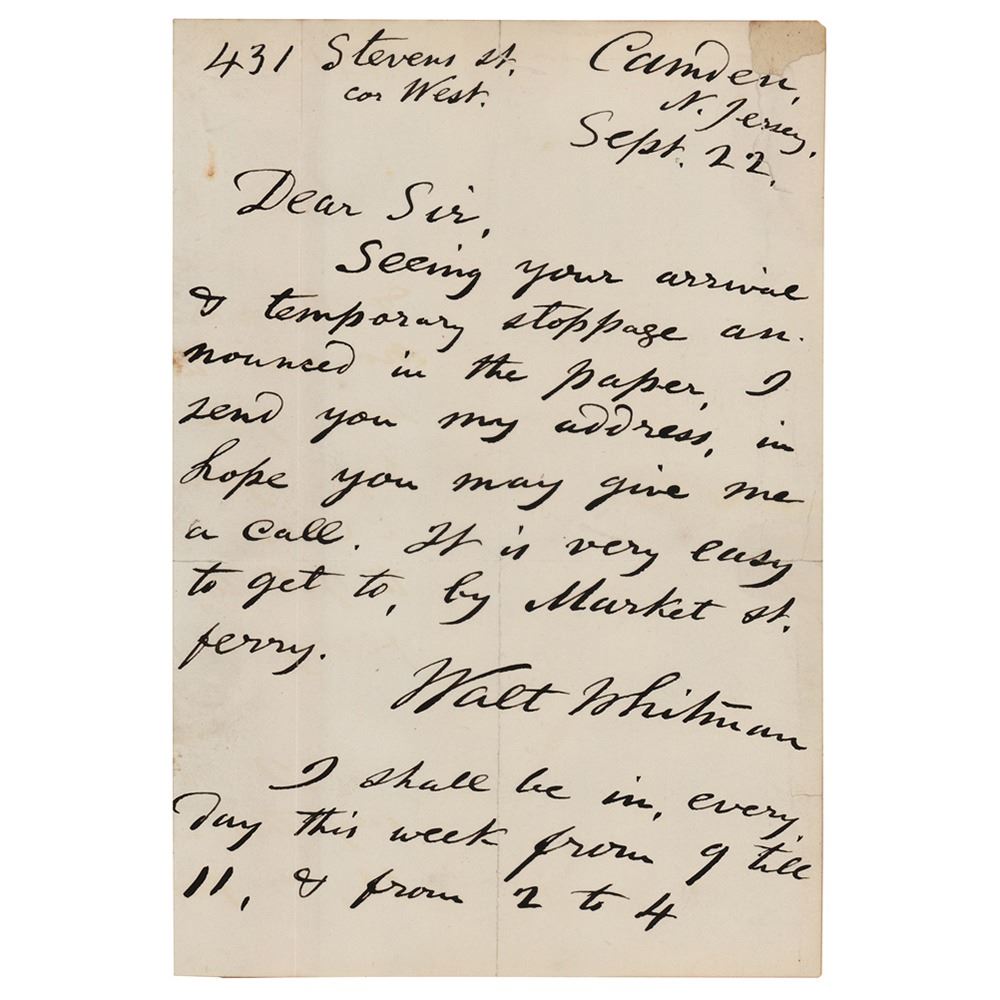 431 Stevens st.
cor West.
Camden,
N. Jersey,
Sept. 22.
Dear Sir,
Seeing your arrival
& temporary stoppage an-
nounced in the paper, I
send you my address, in
hope you may give me
a call. It is very easy
to get to, by Market st.
ferry.
Walt Whitman
I shall be in, every
day this week from 9 till
11, & from 2 to 4